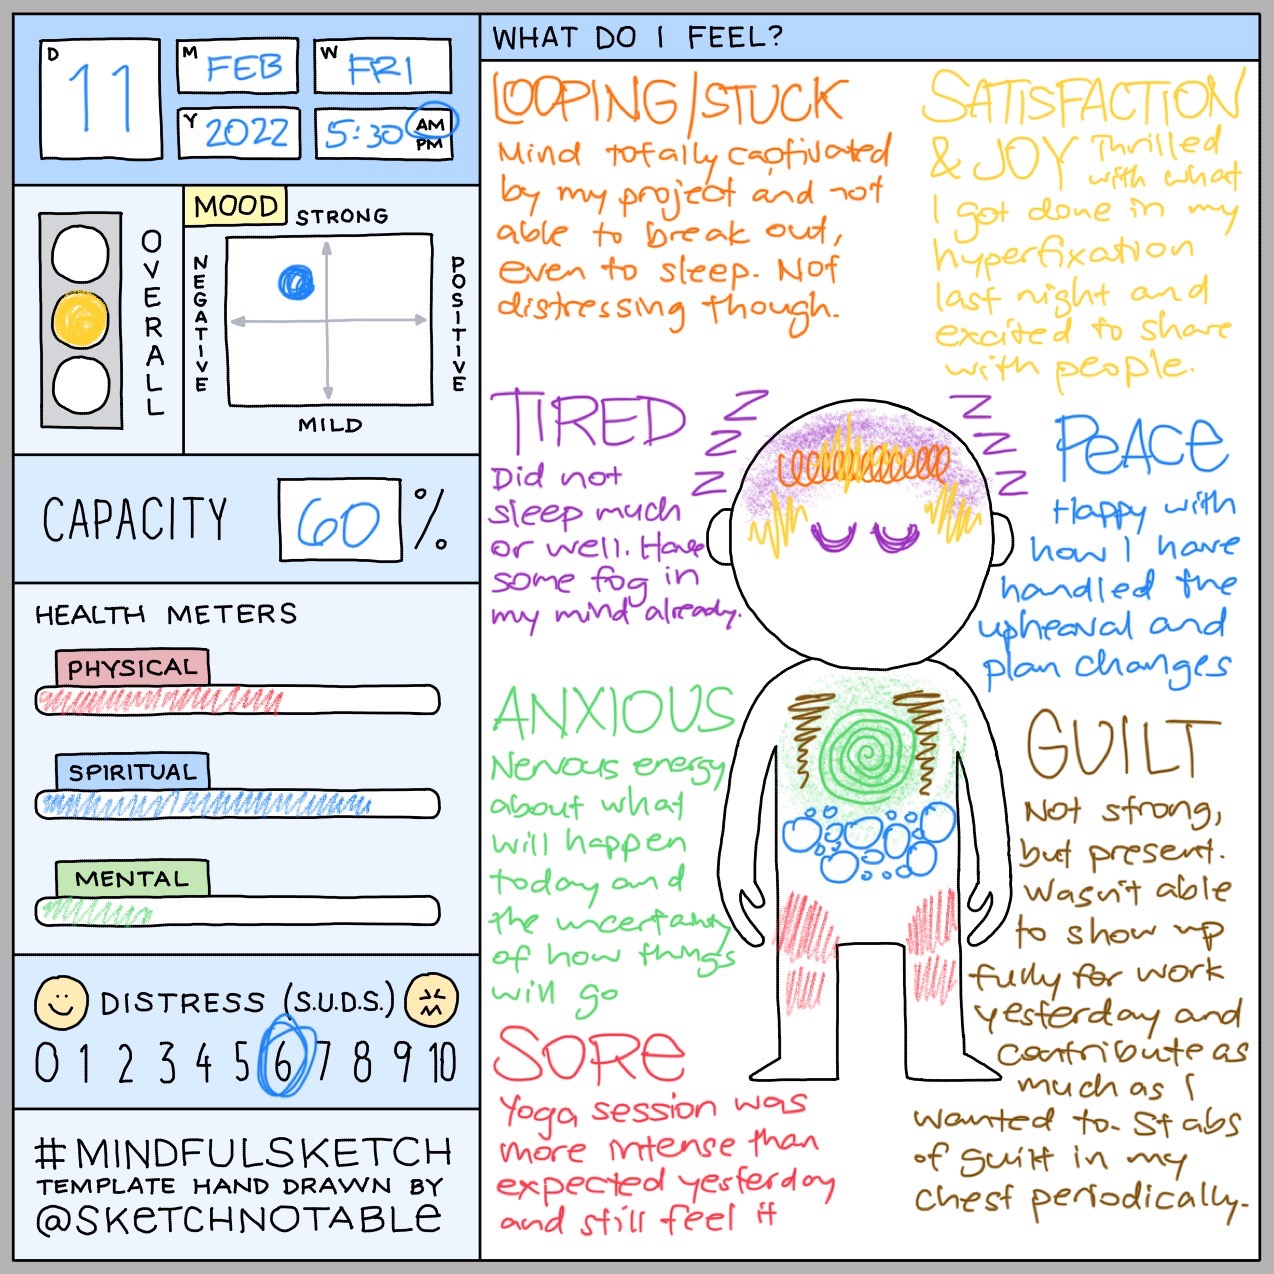 D
11
M
FEB
W
FRI
Y
2022
5:30
AM
PM
OVERALL
MOOD
STRONG
NEGATIVE
POSITIVE
MILD
CAPACITY 60 %
HEALTH METERS
PHYSICAL
SPIRITUAL
MENTAL
DISTRESS (S.U.D.S.)
0 1 2 3 4 5 6 7 8 9 10
#MINDFULSKETCH
TEMPLATE HAND DRAWN BY
@SKETCHNOTABLE
WHAT DO I FEEL?
LOOPING/STUCK
Mind totally captivated
by my project and not
able to break out,
even to sleep. Not
distressing though.
SATISFACTION
& JOY Thrilled
with what
I got done in my
hyperfixation
last night and
excited to share
with people.
TIRED
Did not
sleep much
or well. Have
some fog in
my mind already.
Z
Z
Z
Z
Z
Z
PEACE
Happy with
how I have
handled the
upheaval and
plan changes
ANXIOUS
Nervous energy
about what
will happen
today and
the uncertainty
of how things
will go
GUILT
Not strong,
but present.
Wasn't able
to show up
fully for work
yesterday and
contribute as
much as I
wanted to. Stabs
of guilt in my
chest periodically.
SORE
Yoga session was
more intense than
expected yesterday
and still feel it